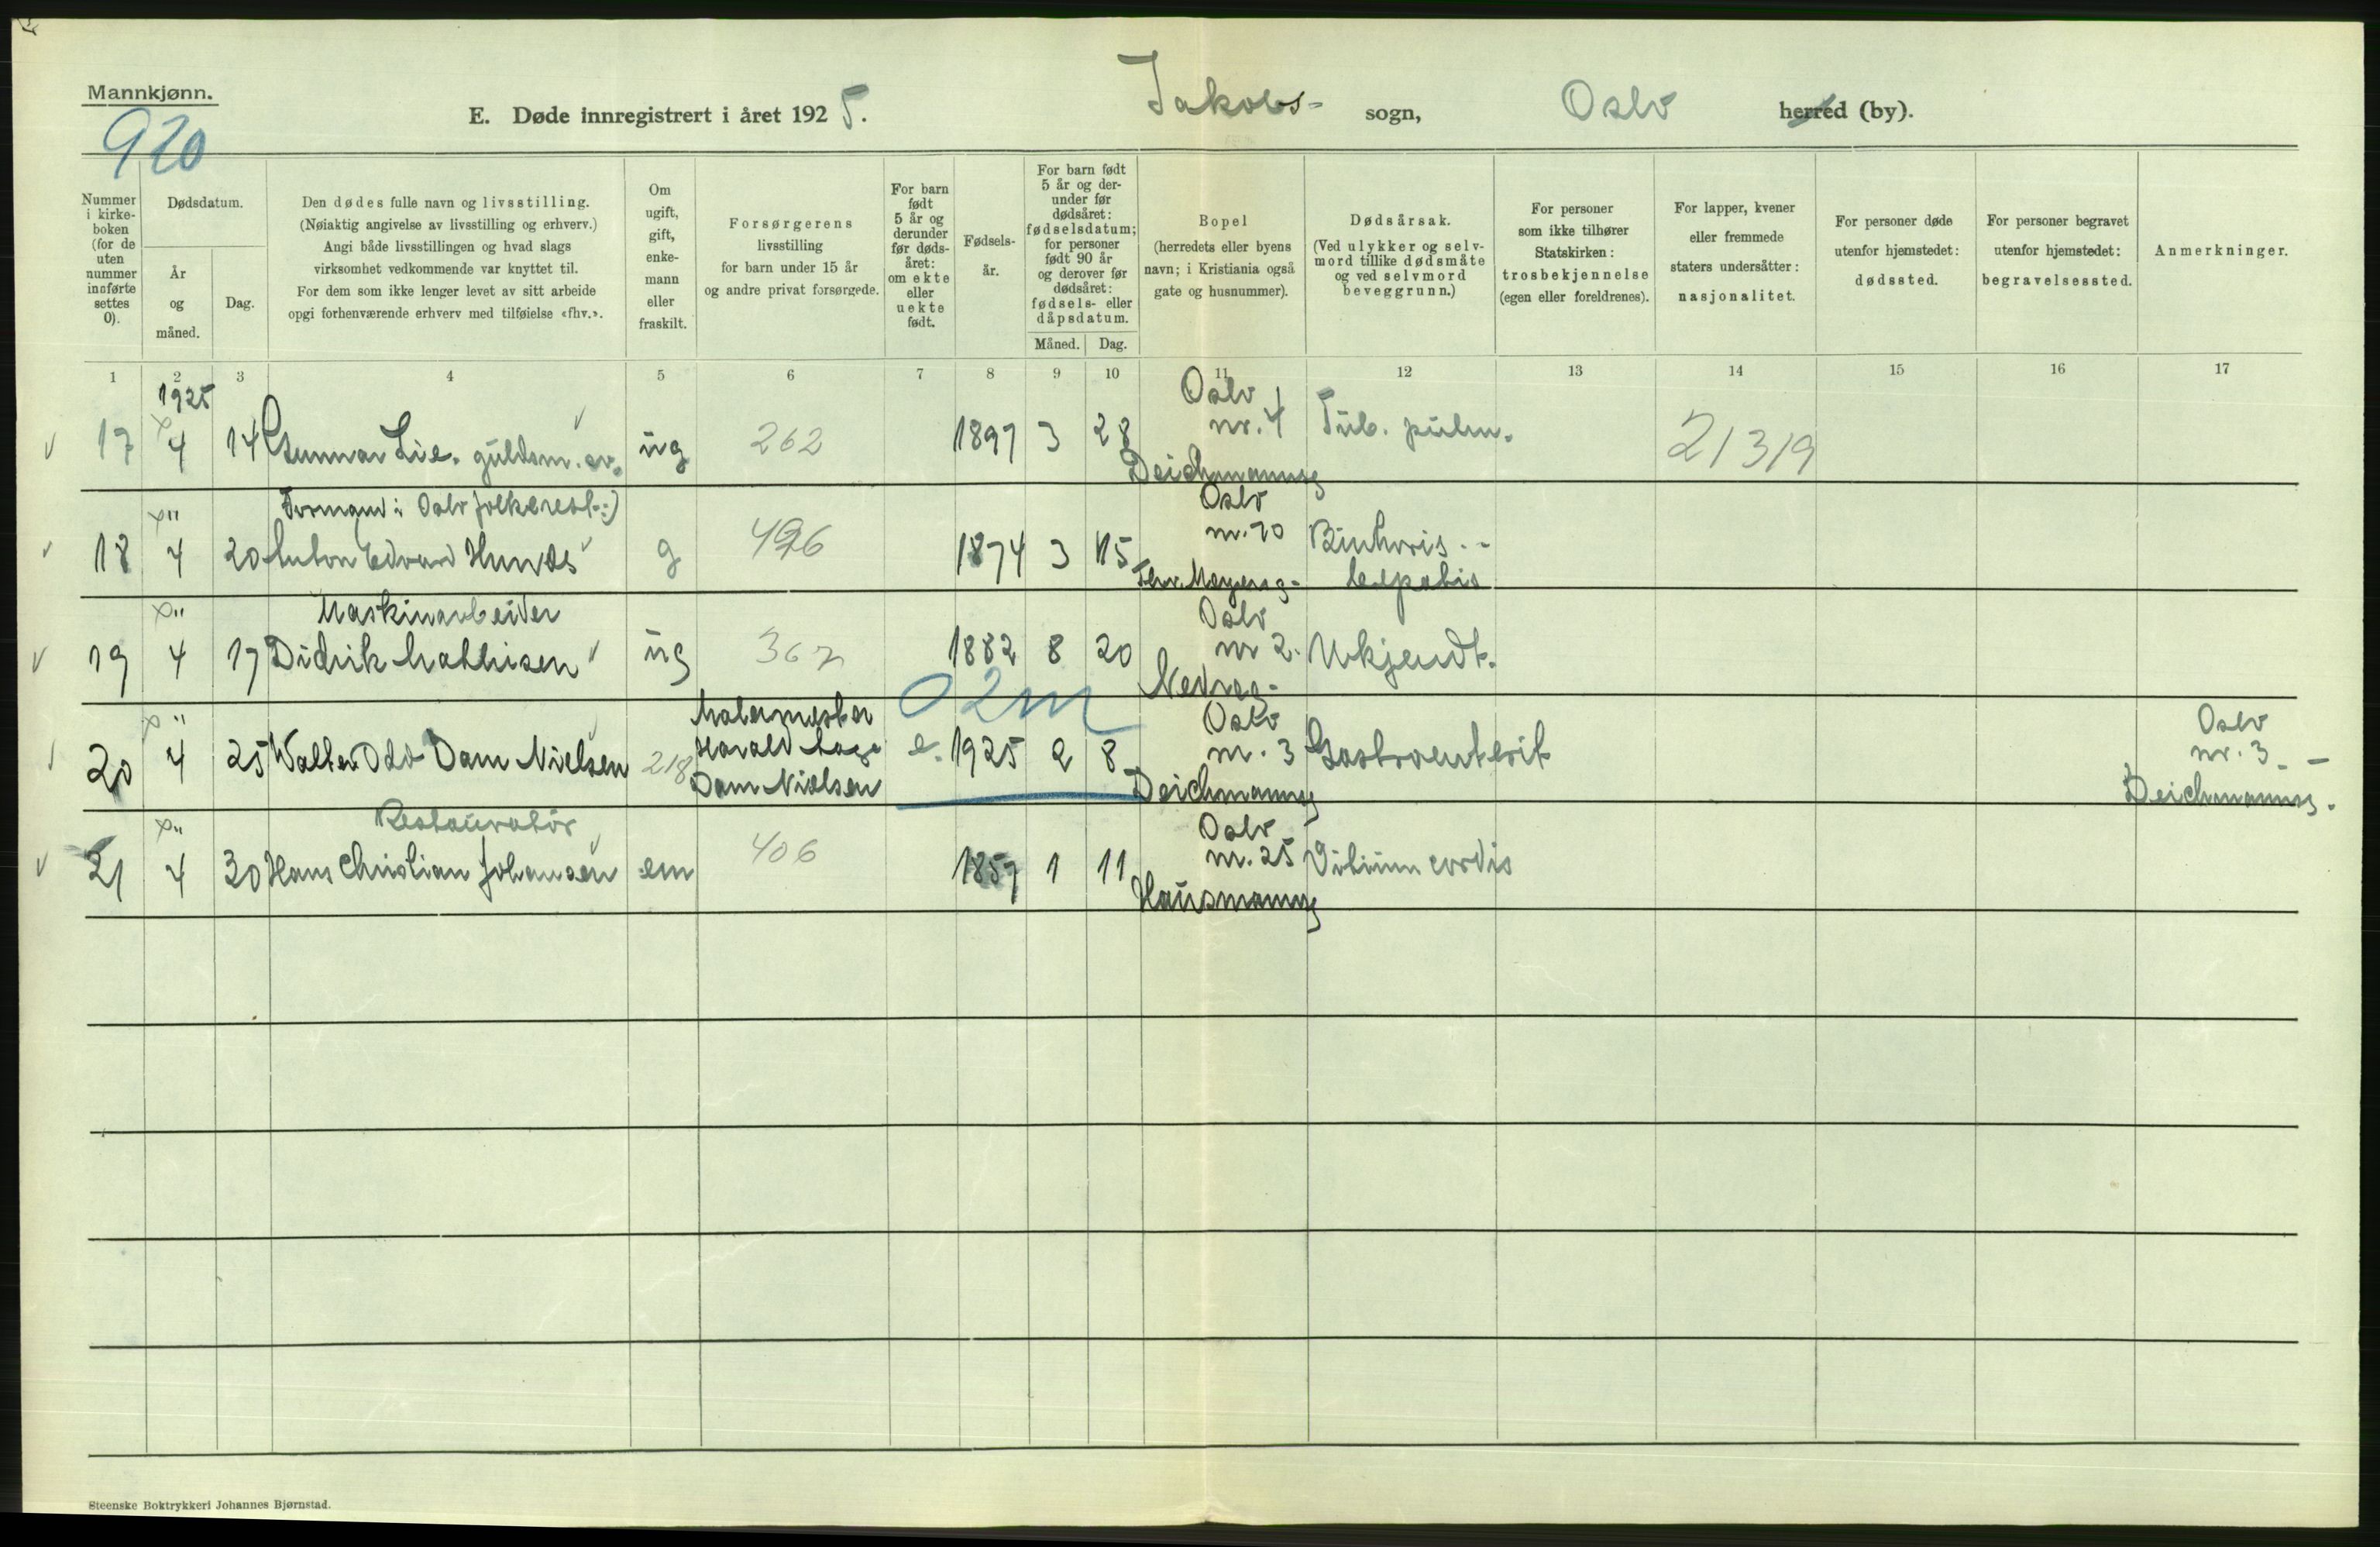 Mannkjønn.
920
E. Døde innregistrert i året 1925.
Jakobs- sogn,
Oslo herred (by).
Nummer i kirkeboken (for de uten nummer innførte settes 0).
Dødsdatum.
År og måned.
Dag.
Den dødes fulle navn og livsstilling.
(Nøiaktig angivelse av livsstilling og erhverv.)
Angi både livsstillingen og hvad slags
virksomhet vedkommende var knyttet til.
For dem som ikke lenger levet av sitt arbeide
opgi forhenværende erhverv med tilføielse «fhv.».
Om ugift, gift, enkemann eller fraskilt.
Forsørgerens
livsstilling
for barn under 15 år
og andre privat forsørgede.
For barn født 5 år og derunder før dødsåret: om ekte eller uekte født.
Fødselsår.
For barn født 5 år og derunder før dødsåret: fødselsdatum; for personer født 90 år og derover før dødsåret: fødsels- eller dåpsdatum.
Måned.
Dag.
Bopel
(herredets eller byens
navn; i Kristiania også
gate og husnummer).
Dødsårsak.
(Ved ulykker og selvmord tillike dødsmåte og ved selvmord beveggrunn.)
For personer
som ikke tilhører
Statskirken:
trosbekjennelse
(egen eller foreldrenes).
For lapper, kvener
eller fremmede
staters undersåtter:
nasjonalitet.
For personer døde
utenfor hjemstedet:
dødssted.
For personer begravet
utenfor hjemstedet:
begravelsessted.
Anmerkninger.
1 2 3 4 5 6 7 8 9 10 11 12 13 14 15 16 17
1925
17 4 14 Gunnar Lie. guldsm. sv. ug 262 1897 3 28 Oslo nr. 4 Deichmannsg Tub. pulm. 21319
Formand i Oslo folkerest.
18 " 4 20 Anton Edvard 496 g 1874 3 15 Oslo nr. 10 Thv. Meyersg-
Maskinarbeider
19 " 4 17 Didrik Mathisen ug 367 1882 8 20 Oslo nr 2. Nedreg- Ukjendt.
02m
20 " 4 25 Walter Odd Dam Nielsen 218 Malermester Harald Aage Dam Nielsen e. 1925 2 8 Oslo nr. 3 Deichmannsg Gastroenterit Oslo nr. 3 Deichmannsg.
Restauratør
21 " 4 30 Hans Christian Johansen em 406 1857 1 11 Oslo nr. 25 Hausmannsg Vitium cordis
Steenske Boktrykkeri Johannes Bjørnstad.